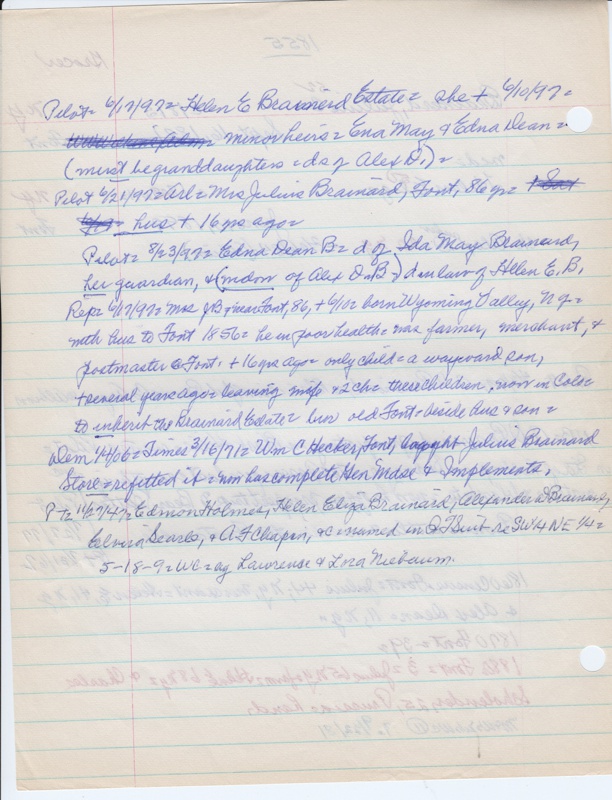 Pilot = 6/17/97 = Helen E Brainerd Estate = she + 6/10/97 =
minor heirs = Ena May & Edna Dean =
(must be granddaughters = ds of Alex D.) =
Pilot 6/21/97 = Arl = Mrs Julius Brainard, Font, 86 yr =
hus + 16 yrs ago =
Pilot = 8/23/97 = Edna Dean B = d of Ida May Brainerd,
her guardian, & (widow of Alex D. B) d in law of Helen E. B.
Rep = 6/17/97 = Mrs J B near Font, 86, + 6/10 = born Wyoming Valley, N Y =
with hus to Font 1856 = he in poor health = was farmer, merchant, &
postmaster @ Font. + 16 yrs ago = only child = a wayward son,
+ several years ago = leaving wife & 2 ch = these children, now in Colo =
to inherit the Brainard Estate = bur old Font = beside hus & son =
Dem 1/4/06 = Times 3/16/71 = Wm C Hecker, Font, bought Julius Brainard
Store = refitted it = now has complete Gen Mdse & Implements.
P T = 11/27/47 = Edmon Holmes, Helen Eliza Brainard, Alexander D Brainard,
Elvira Searls, & A F Chapin, &c named in Q T Suit = re SW/4 NE 1/4 =
5-18-9 = WC = ag Lawrence & Lora Niebaum.